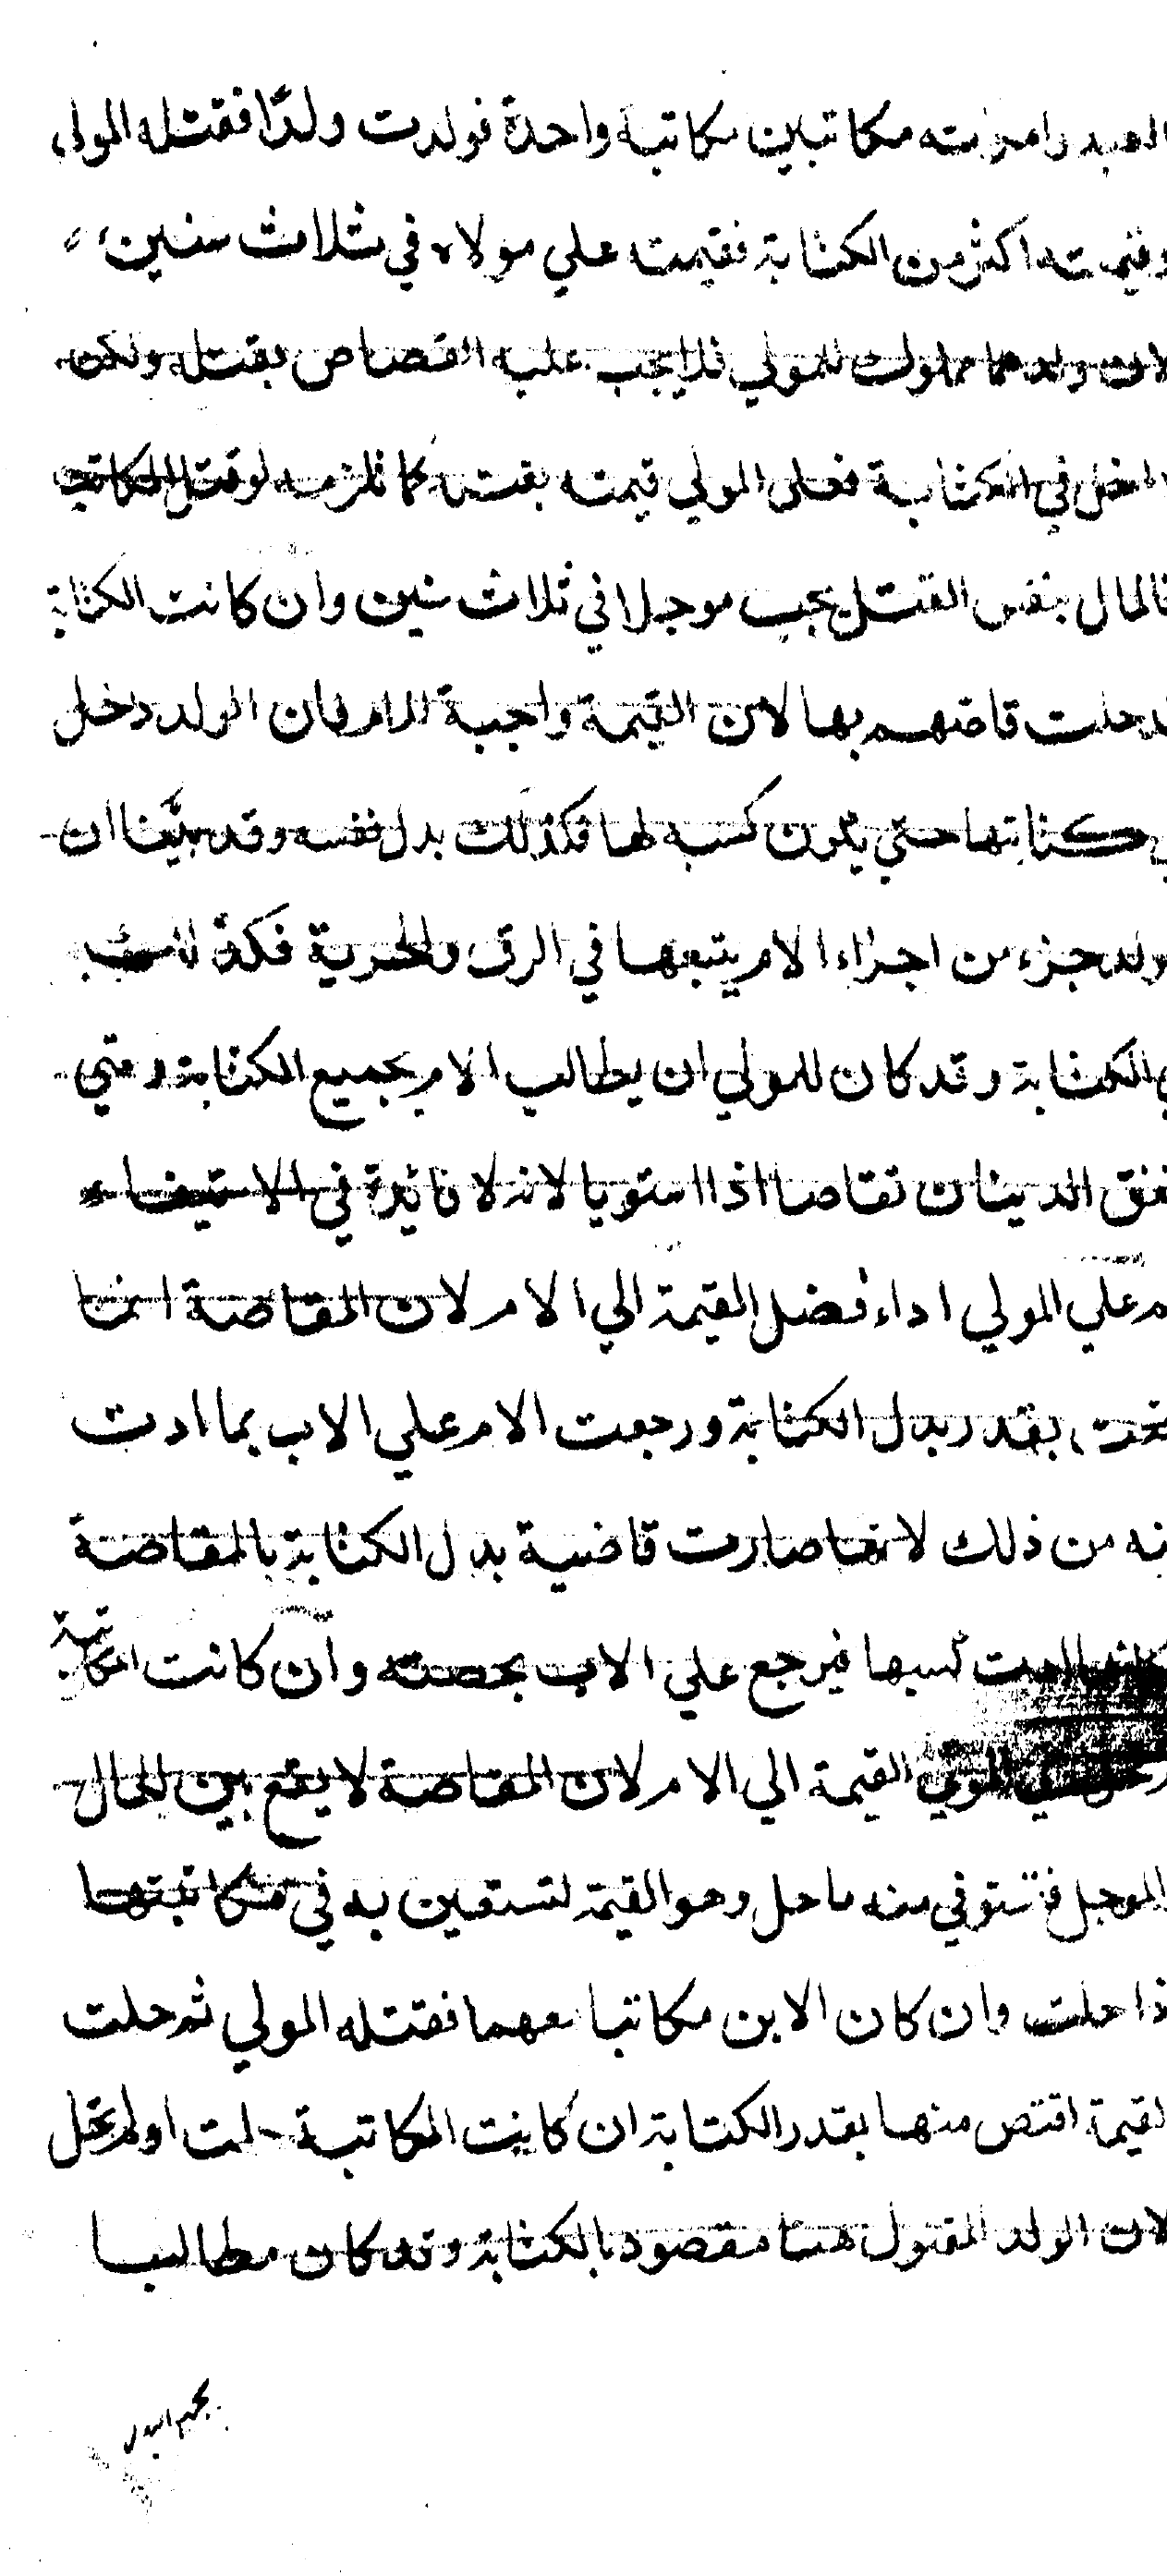 العبد وامرته مكاتبين مكاتبة واحدة فولدت ولدًا فقتله المولى
وقيمته اكثر من الكتابة فقيمته علي مولاه في ثلاث سنين
لان ولدهما مملوك للمولي فلا يجب عليه القصاص بقتله ولكن
داخل في الكتابة فعلى المولي قيمته بقتله كما تلزمه لوقتل المكاتب
فالمال بنفس القتل يجب موجلا في ثلاث سنين وان كانت الكتابة
قد حلت قاصهم بها لان القيمة واجبة للام فان الولد دخل
في كتابتها حتي يكون كسبه لها فكذلك بدل نفسه وقد بيَّنا ان
ولد جزء من اجزاء الام يتبعها في الرق والحرية فكذا
الكتابة وقد كان للمولي ان يطالب الام بجميع الكتابة ومتي
اتفق الدينان تقاصا اذا استويا لانه لا فائدة في الاستيفاء
ثم علي المولي اداء فضل القيمة الي الام لان المقاصة انما
بقدر بدل الكتابة ورجعت الام علي الاب بما ادت
عنه من ذلك لانها صارت قاضية بدل الكتابة بالمقاصة
كسبها فيرجع علي الاب بحصته وان كانت المكاتبة
المولي القيمة الي الام لان المقاصة لا يقع بين الحال
الموجل فتستوفي منه ما حل وهو القيمة لتستعين به في مكاتبتها
اذا حلت وان كان الابن مكاتبا معهما فقتله المولي ثم حلت
القيمة اقتص منها بقدر الكتابة ان كانت المكاتبة حلت اولم تحل
لان الولد المقتول هنا مقصود بالكتابة وقد كان مطالبا